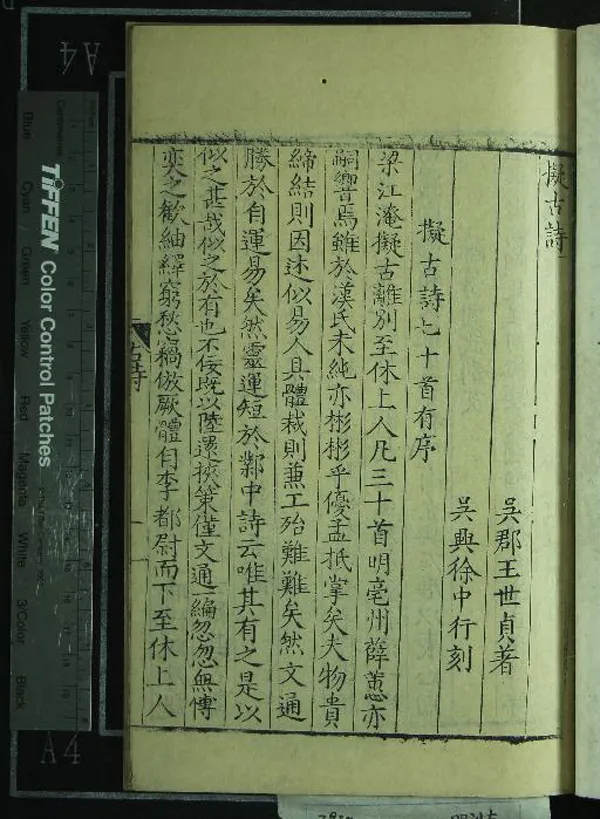 擬古詩
吳郡王世貞著
吳興徐中行刻
擬古詩七十首有序
梁江淹擬古離別至休上人凡三十首明亳州薛蕙亦
嗣響焉雖於漢氏未純亦彬彬乎優孟抵掌矣夫物貴
締結則因述似易人具體裁則兼工殆難難矣然文通
勝於自運易矣然靈運短於鄴中詩云唯其有之是以
似之甚哉似之於有也不佞既以陸沉挾策僅文通一編忽忽無慱
奕之歡紬繹窮愁竊倣厥體自李都尉而下至休上人
古詩
TIFFEN Color Control Patches
Centimetres
Blue Cyan Green Yellow Red Magenta White 3/Color Black
A4
A4